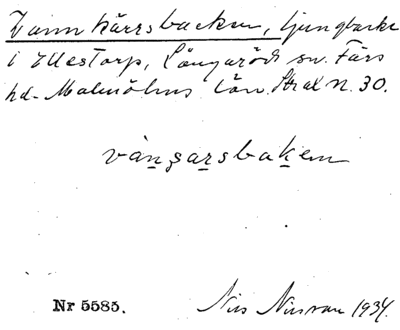 Vannkärrsbacken, Ljungbacke
i Ellestorp, Långaröds sn. Färs
hd. Malmöhus län. Skal N. 30.
vànʒarsbakem
Nr 5585.
Nils Nilsson 1934.